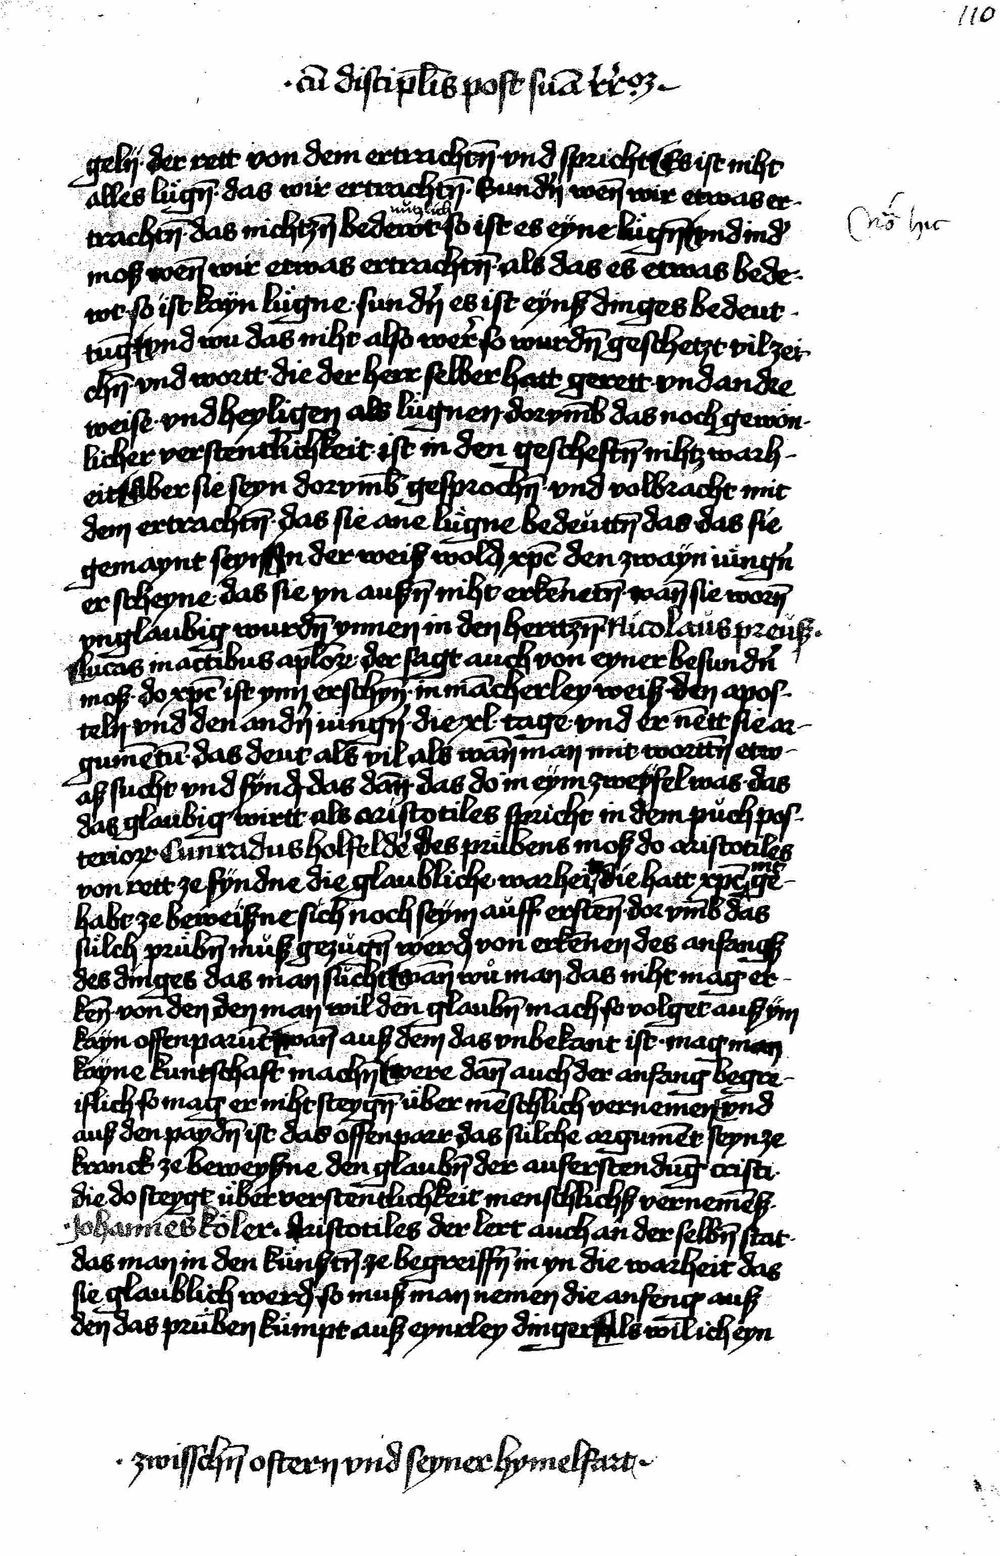 110
·cū discipl̄is post suā rr̄oꝫ·
gelij· der rett von dem ertrachtn̄· vnd spricht Es ist niht
alles lu̇gn̄· das wir ertrachtn̄· Sundn̄ wen̄ wir etwas er-
trachtn̄· das nichtzn̄ bedewt nu̇tzlich so ist es eyne lu̇gn̄ vnd in d̓
moß wen̄ wir etwas ertrachtn̄· als das es etwas bede-
wt· so ist kayn lu̇gne· sundn̄ es ist eynß dinges bedeut-
tūg vnd wu das niht also wer̓ so wurdn̄ geschetzt vil zei-
chn̄ vnd wortt· die der herr selber hatt gerett· vnd andre
weise· vnd heyligen als lu̇gnen· dorvmb das noch gewon-
licher verstentlichkeit· ist in den gescheftn̄ nihtz warh-
eit Aber sie seyn dorvmb gesprochn̄· vnd volbracht mit
dem ertrachtn̄· das sie ane lu̇gne bedeu̇ttn̄ das· das sie
gemaynt seyn In der weiß wold xp̄c den zwayn iu̇ngn̄
erscheyne· das sie yn außn̄ niht erkēnetn̄· wan̄ sie worn̄
vnglaubig wurdn̄ ynnen in den hertzn̄ Nicolau̇s preu̇ß·
Lucas in actibus apl̄oꝝ· der sagt auch von eyner besundn̄
moß· do xp̄c ist ynn erschyn̄· in mācherley weiß· den apos-
teln vnd den andn̄ iungn̄· die xl· tage· vnd er nētt sie ar-
gumētū· das deut als vil als wan̄ man mit worttn̄ etw-
aß sucht vnd fynd̓ das dan̄· das do in eym zweyfel was· das
das glaubig wirtt· als aristotiles spricht in dem pu̇ch pos-
terioꝝ· Cunradus holfelder̓ des pru̇bens moß do aristotiles
von rett ze fyndne die glaubliche warheit die hatt xp̄c nit ge-
habt ze beweißne sich noch seym auff erstēn· dorvmb das
su̇lch pru̇bn̄ mu̇ß gezu̇gn̄ werd̓ von erkēnen des anfangß
des dinges das man su̇cht wan̄ wu̇ man das niht mag er-
kēn̄· von den den man wil den̄ glaubn̄ mach so volget auß ym
kayn offenparūt wan̄ auß dem das vnbekant ist· mag man
kayne kuntschaft machn̄ were dan̄ auch der anfang begre-
iflich so mag er niht steygn̄ u̇ber mēschlich vernemen vnd
auß den paydn̄ ist das offenparr das su̇lche argumēt seyn ze
kranck ze beweyßne den glaubn̄ der auferstendūg cristi·
die do steygt u̇ber verstentlichkeit menschlichß vernemēß·
·Johannes ko̊ler· Aristotiles der lert auch an der selbn̄ stat·
das man in den ku̇nßtn̄ ze begreiffn̄ in yn die warheit das
sie glaublich werd̓· so muß man nemen die anfeng auß
den das pru̇ben ku̇mpt auß eynrley dinger Als wil ich eyn
·zwisschn̄ ostern vnd seyner hymelfart·